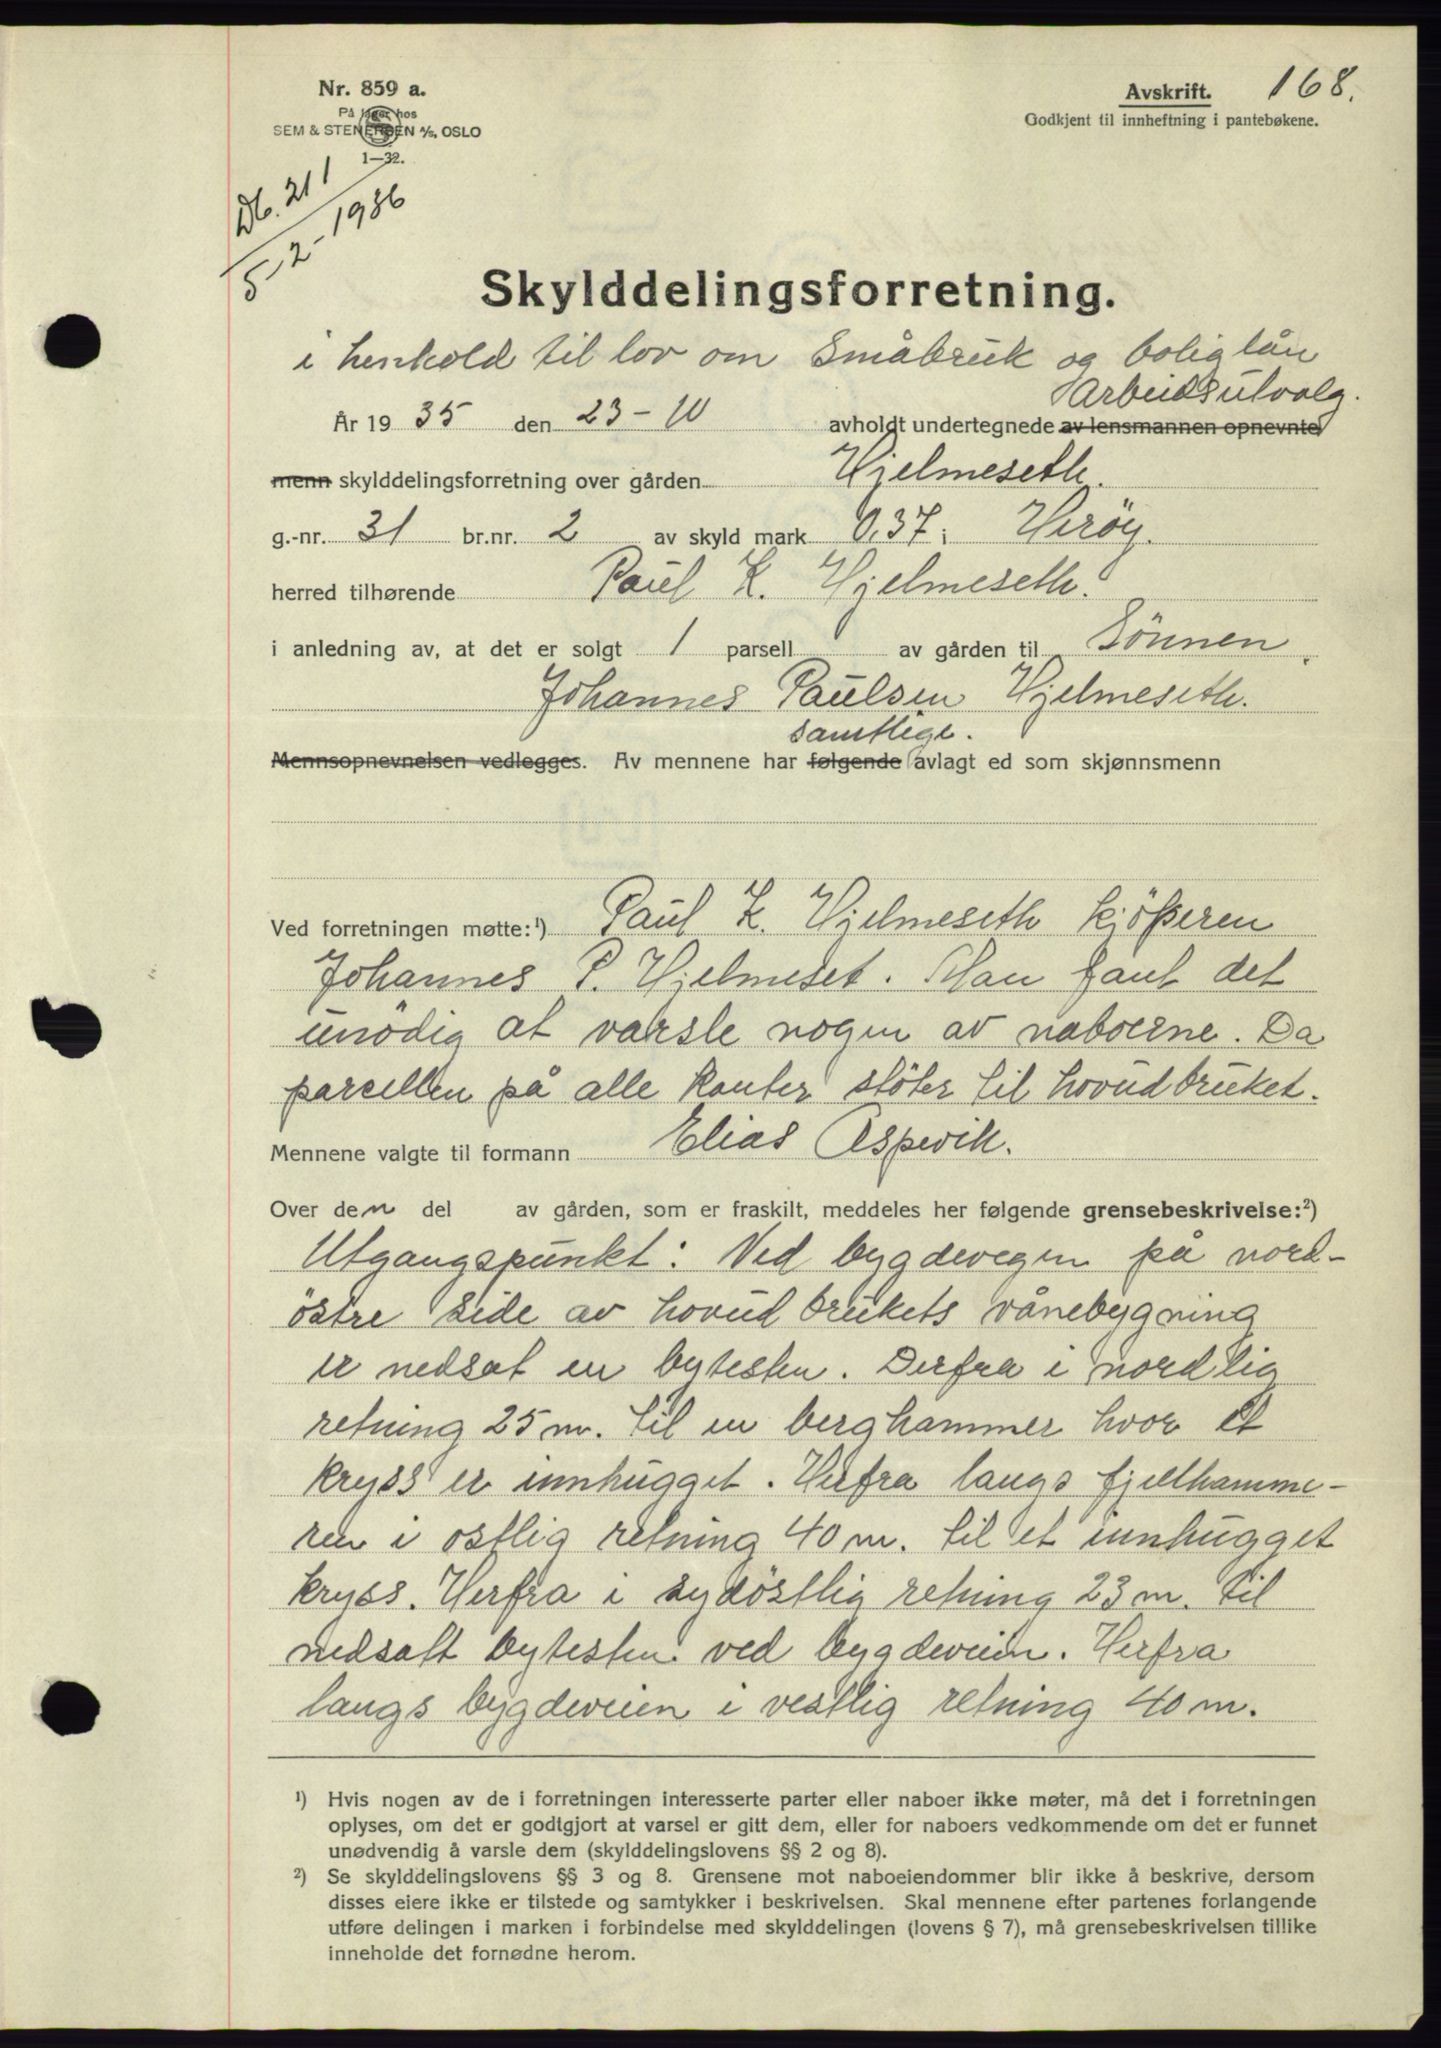 Nr. 859 a.
På lager hos
SEM & STENERSEN A/S, OSLO
1—32.
Avskrift. 168.
Godkjent til innheftning i pantebøkene.
Db. 211
5-2-1936
Skylddelingsforretning.
i henhold til lov om Småbruk og boliglån
Arbeidsutvalg.
År 1935 den 23-10 avholdt undertegnede av lensmannen opnevnte
menn skylddelingsforretning over gården Hjelmeseth.
g.-nr. 31 br.nr. 2 av skyld mark 0,37 i Herøy.
herred tilhørende Paul K. Hjelmeseth.
i anledning av, at det er solgt 1 parsell av gården til Sönnen
Johannes Paulsen Hjelmeseth.
samtlige.
Mennsopnevnelsen vedlegges. Av mennene har følgende avlagt ed som skjønnsmenn
Ved forretningen møtte:¹) Paul K. Hjelmeseth kjöperen
Johannes P. Hjelmeset. Man fant det
unödig at varsle nogen av naboerne. Da
parcellen på alle kanter stöter til hovudbruket.
Mennene valgte til formann Elias Aspevik.
Over den del av gården, som er fraskilt, meddeles her følgende grensebeskrivelse:²)
Utgangspunkt: Ved bygdevegen på nord-
östre side av hovudbrukets vånebygning
er nedsat en bytesten. Derfra i nordlig
retning 25 m. til en berghammer hvor et
kryss er innhugget. Herfra langs fjellhamme-
ren i ostlig retning 40 m. til et innhugget
kryss. Herfra i sydöstlig retning 23 m. til
nedsatt bytesten ved bygdeveien. Herfra
langs bygdeveien i vestlig retning 40 m.
¹) Hvis nogen av de i forretningen interesserte parter eller naboer ikke møter, må det i forretningen
oplyses, om det er godtgjort at varsel er gitt dem, eller for naboers vedkommende om det er funnet
unødvendig å varsle dem (skylddelingslovens §§ 2 og 8).
²) Se skylddelingslovens §§ 3 og 8. Grensene mot naboeiendommer blir ikke å beskrive, dersom
disses eiere ikke er tilstede og samtykker i beskrivelsen. Skal mennene efter partenes forlangende
utføre delingen i marken i forbindelse med skylddelingen (lovens § 7), må grensebeskrivelsen tillike
inneholde det fornødne herom.